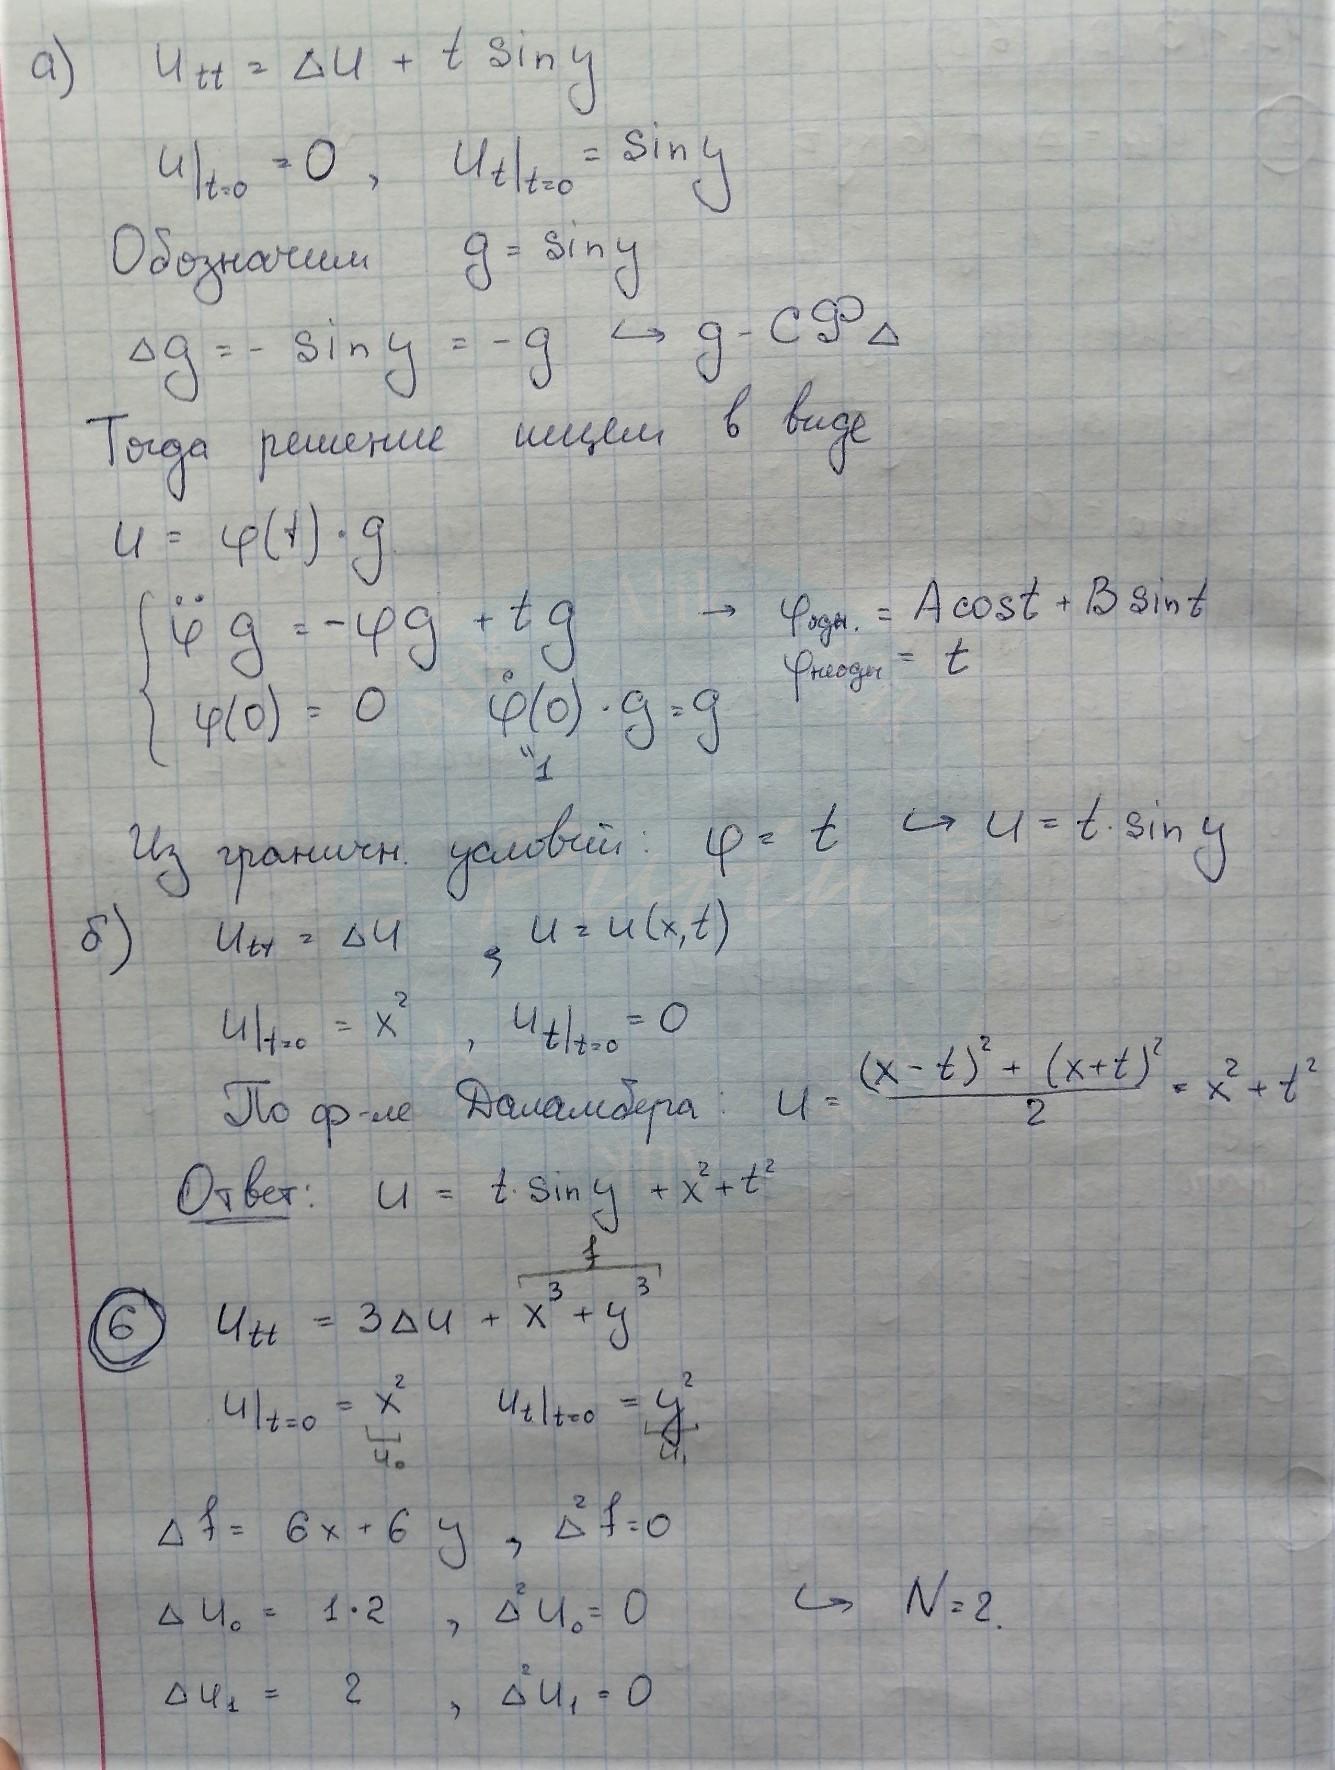 а) u_tt = Δu + t sin y
u|t=0 = 0, u_t|t=0 = sin y
Обозначим g = sin y
Δg = - sin y = -g ↪ g - СФ Δ
Тогда решение ищем в виде
u = φ(t)·g
φ̈ g = -φg + tg → φодн. = A cos t + B sin t
φнеодн = t
φ(0) = 0 φ̇(0)·g = g
"1
Из граничн. условий: φ = t ↪ u = t·sin y
б) u_tt = Δu, u = u(x,t)
u|t=0 = x², u_t|t=0 = 0
По ф-ле Даламбера: u = ((x-t)² + (x+t)²)/2 = x² + t²
Ответ: u = t·sin y + x² + t²
f
6 u_tt = 3Δu + x³ + y³
u|t=0 = x² u_t|t=0 = y²
u₀ u₁
Δf = 6x + 6y, Δ²f = 0
Δu₀ = 1·2, Δ²u₀ = 0 ↪ N = 2.
Δu₁ = 2, Δ²u₁ = 0